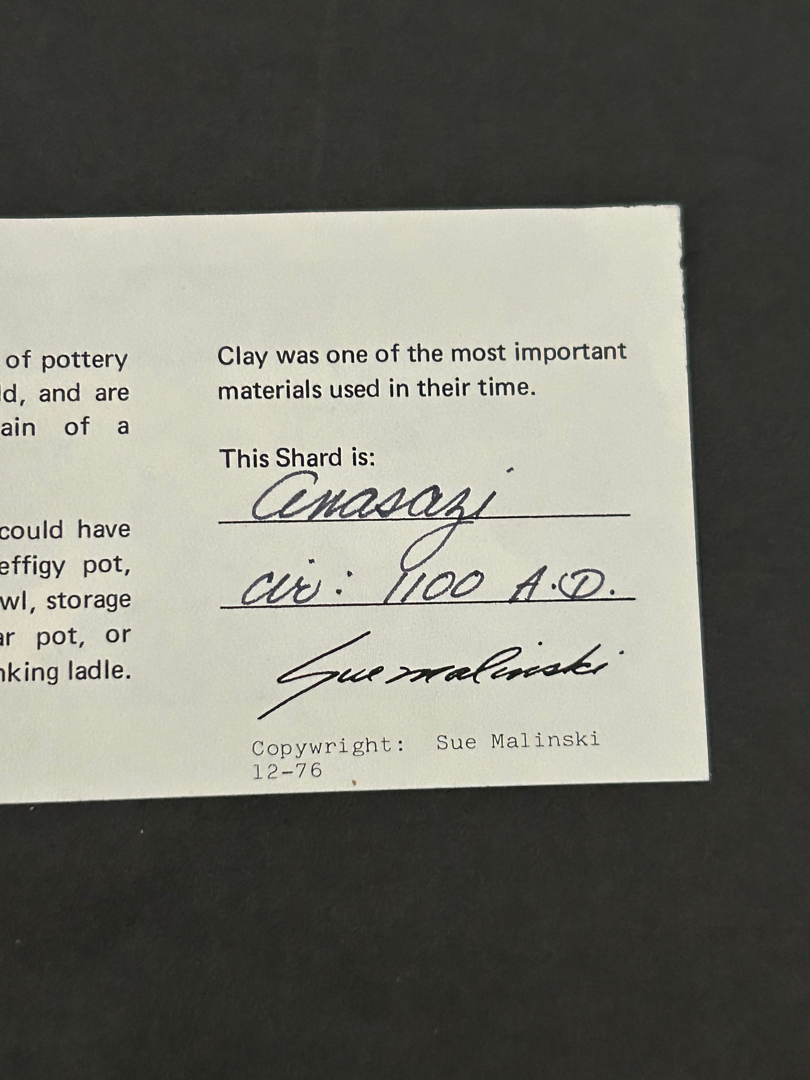 of pottery
ld, and are
ain of a
could have
effigy pot,
wl, storage
ar pot, or
nking ladle.
Clay was one of the most important
materials used in their time.
This Shard is:
Anasazi
cir: 1100 A.D.
Sue Malinski
Copywright: Sue Malinski
12-76